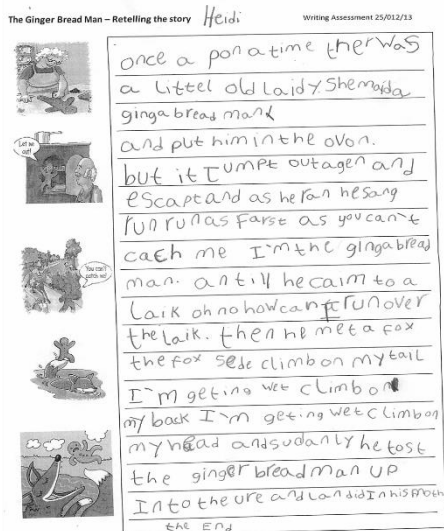 The Ginger Bread Man – Retelling the story Heidi Writing Assessment 25/012/13
once a pon a time therwas
a littel old laidy. She maida
ginga bread mand
Let me out!
and put him in the ovon.
but it Jumpt out agen and
escapt and as he ran he sang
run run as farst as you can't
catch me I'm the ginga bread
You can't catch me!
man. antill he caim to a
Laik oh no how can I run over
the Laik. then he met a fox
the fox sede climb on my tail
I'm geting wet climb on
my back I'm geting wet climb on
my head and sudanly he tost
the ginger bread man up
Into the ure and Lan did In his moth
the End